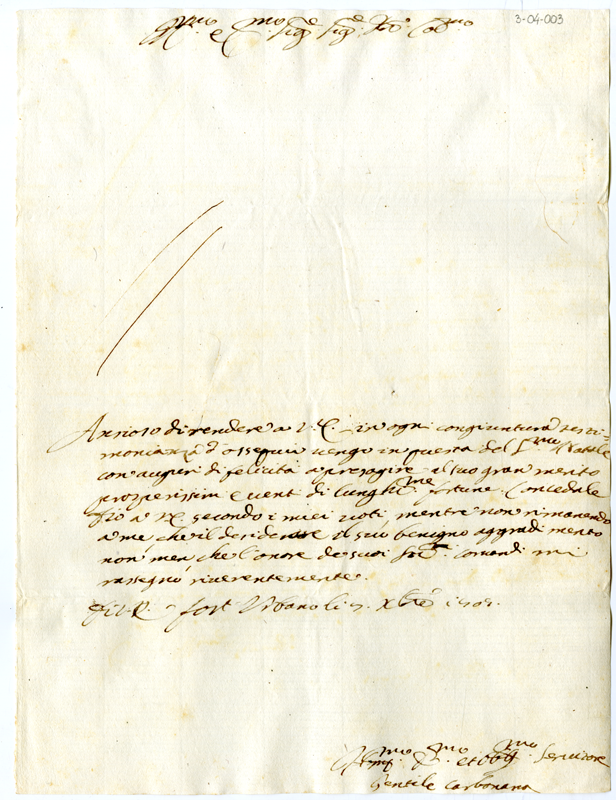 3-04-003
Ill.mo e mo Sig.e Sig.e P.ne Col.mo
Ansioso di rendere a V.E. in ogni congiuntura testi-
monianza d'ossequi vengo in questa del S.mo Natale
con auguri di felicità a presagire al suo gran merito
prosperissimi eventi di lunghi.me fortune. Concedale
Dio a V.E. secondo i miei voti mentre non rimanendo
a me che il desiderare il suo benigno aggradimento
non men che l'onore de suoi comandi mi
rassegno riverentemente.
Di V.E. Fort Urbano li 9. Xbre 1705.
mo mo et obb.mo Servitore
Gentile Carbonana